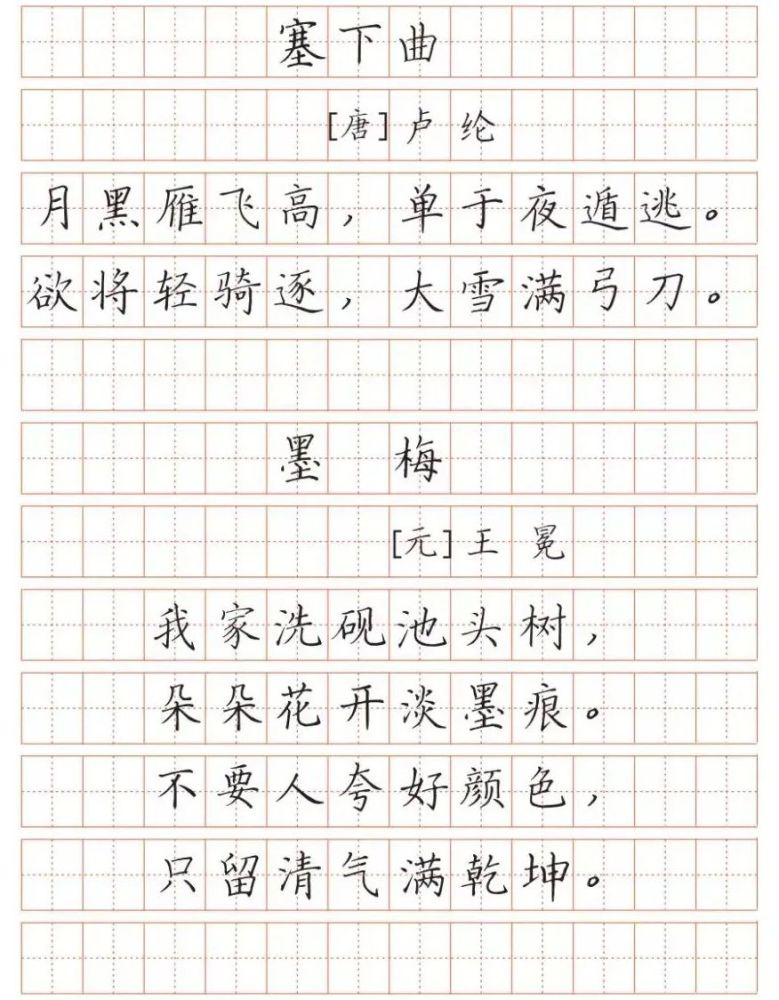 塞下曲
[唐]卢纶
月黑雁飞高，单于夜遁逃。
欲将轻骑逐，大雪满弓刀。
墨梅
[元]王冕
我家洗砚池头树，
朵朵花开淡墨痕。
不要人夸好颜色，
只留清气满乾坤。